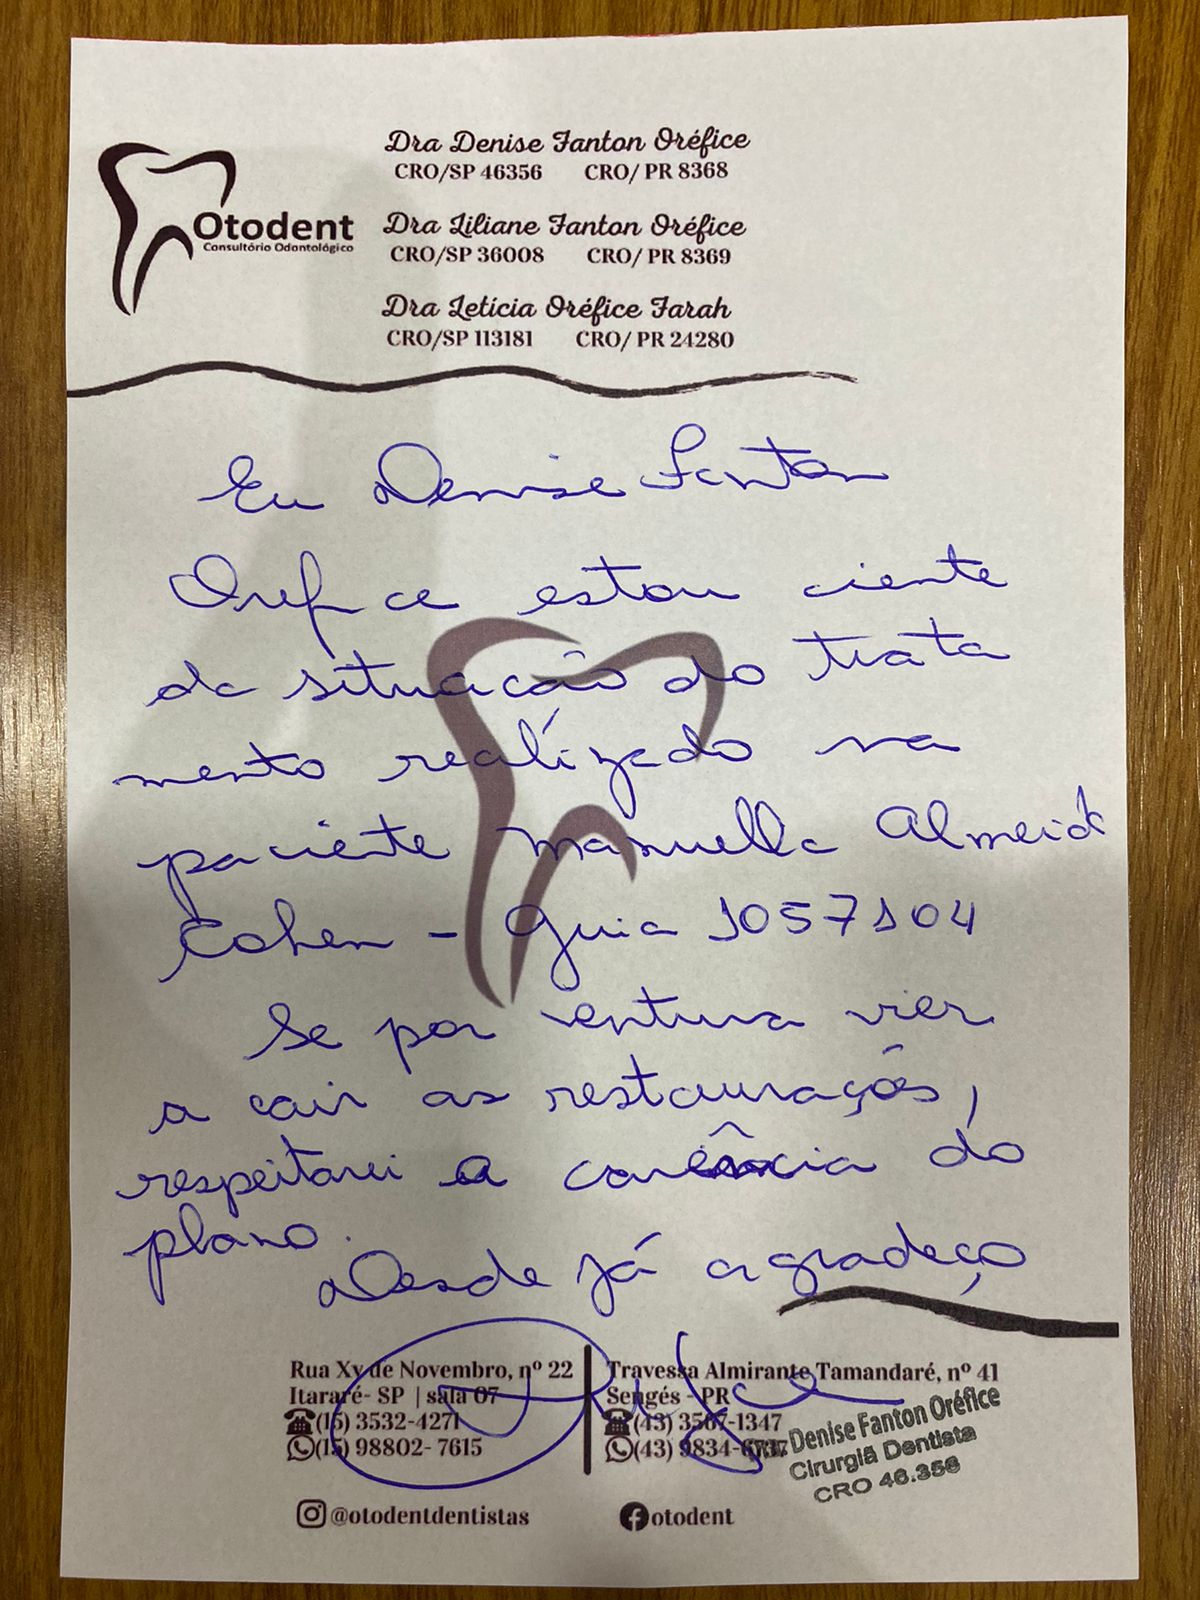 Dra Denise Fanton Oréfice
CRO/SP 46356 CRO/ PR 8368
Otodent
Consultório Odontológico
Dra Liliane Fanton Oréfice
CRO/SP 36008 CRO/ PR 8369
Dra Letícia Oréfice Farah
CRO/SP 113181 CRO/ PR 24280
Eu Denise Fanton
Orefice estou ciente
da situacão do trata
mento realizado na
paciente Manuella Almeida
Cohen - Guia 1057104
Se por ventura vier
a cair as restaurações,
respeitarei a carência do
plano.
Desde já agradeço
Rua Xv de Novembro, nº 22
Itararé- SP | sala 07
(15) 3532-4271
(15) 98802- 7615
Travessa Almirante Tamandaré, nº 41
Sengés - PR
(43) 3567-1347
(43) 9834-
Denise Fanton Oréfice
Cirurgiã Dentista
CRO 46.356
@otodentdentistas
otodent